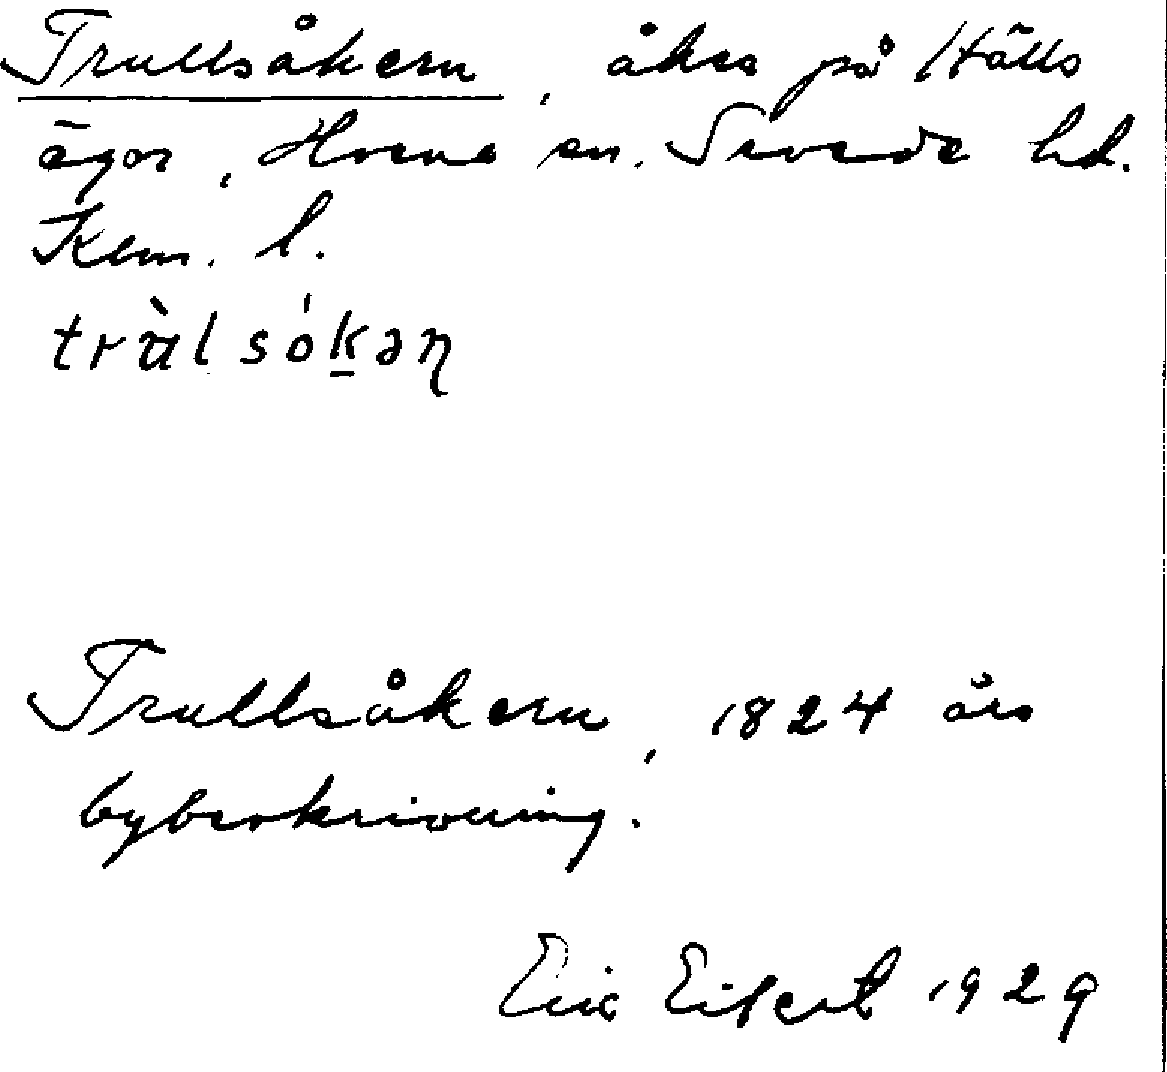 Trullsåkern, åker på Hälls
ägor, Horns sn. Sevede hd.
Klm. l.
tràlsókaɳ
Trullsåkern, 1824 års
bybeskrivning.
Eric Eifert 1929